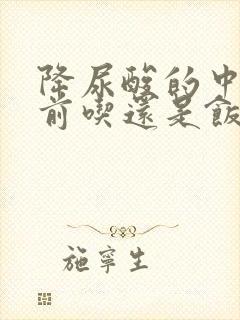 降尿酸的中
前喫還是飯
施寧生